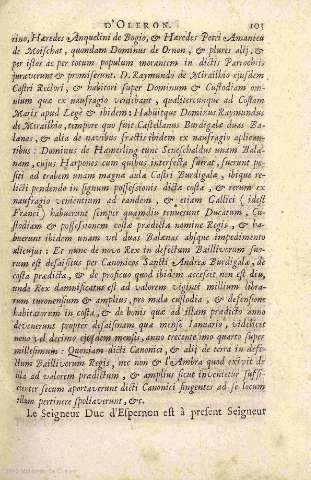 D'OLERON. 105
rino, Hæredes Anquelini de Bogio, & Hæredes Petri Amaneu
de Moischat, quondam Dominus de Ornon, & plures alij, &
per istos ac per totum populum morantem in dictis Parochiis
juraverunt & promiserunt. D. Raymundo de Miraillio ejusdem
Castri Rectori, & habitori super Dominum & Custodiam om-
nium quæ ex naufragio venibant, qualitercunque ad Costam
Maris apud Legé & ibidem: Habuitque Dominus Raymundus
de Miraillio, tempore quo fuit Castellanus Burdigalæ duas Ba-
lanas, & alia de navibus fractis ibidem ex naufragio applican-
tibus: Dominus de tunc Seneschaldus unam Bala-
nam, cujus Harpones cum quibus interfecta fuerat, fuerunt posi-
ti ad trabem unam magna aula Castri Burdigalæ, ibique re-
licti pendendo in signum possessionis dicta costa, & rerum ex
naufragio venientium ad eandem, & etiam Gallici (idest
Franci) habuerunt semper quamdiu tenuerunt Ducatum, Cu-
stodiam & possessionem costæ prædictæ nomine Regis, & ha-
buerunt ibidem unam vel duas Balanas absque impedimento
alicujus: Et nunc de novo Rex in defectum Baillivorum suo-
rum est desaisitus per Canonicos Sancti Andreæ Burdigalæ, de
costa prædicta, & de proficuo quod ibidem accessit non est diu,
unde Rex damnificatus est ad valorem viginti millium libra-
rum turonensium & amplius, pro mala custodia, & defensione
habitatorum in costa, & de bonis quæ ad illam prædicto anno
devenerunt propter desaisinam quæ mensis Ianuario, videlicet
nono vel decimo ejusdem mensis, anno trecentesimo quarto super
millesimum: Quoniam dicti Canonici, & alij de terra in defe-
ctum Baillivorum Regis, & l'Ambra quod exivit
ad valorem prædictum, & amplius sicut invenietur suffi-
center secum aportaverunt dicti Canonici fingentes ad se locum
illum pertinere spoliaverunt, &c.
Le Seigneur Duc d'Espernon est à present Seigneur